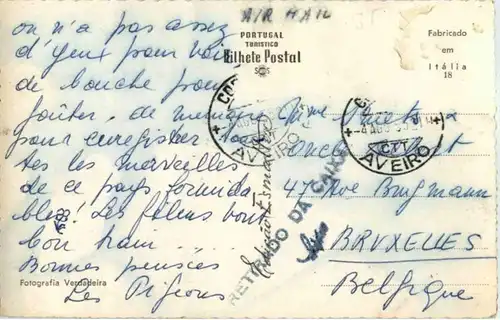 AIR MAIL
PORTUGAL
TURISTICO
Bilhete Postal
Fabricado
em
Itália
18
on n'a pas assez
d'yeux pour voir
de bouche pour
goûter, de mémoire
pour enregistrer tou
tes les merveilles
de ce pays formida
bles! Les filous vont
bon train....
Bonnes pensées
Les Pigeons
Fotografia Verdadeira
Mme
47 Rue Brugmann
BRUXELLES
Belgique
AVEIRO
CTT
AVEIRO
RETIRADO DA CAIXA